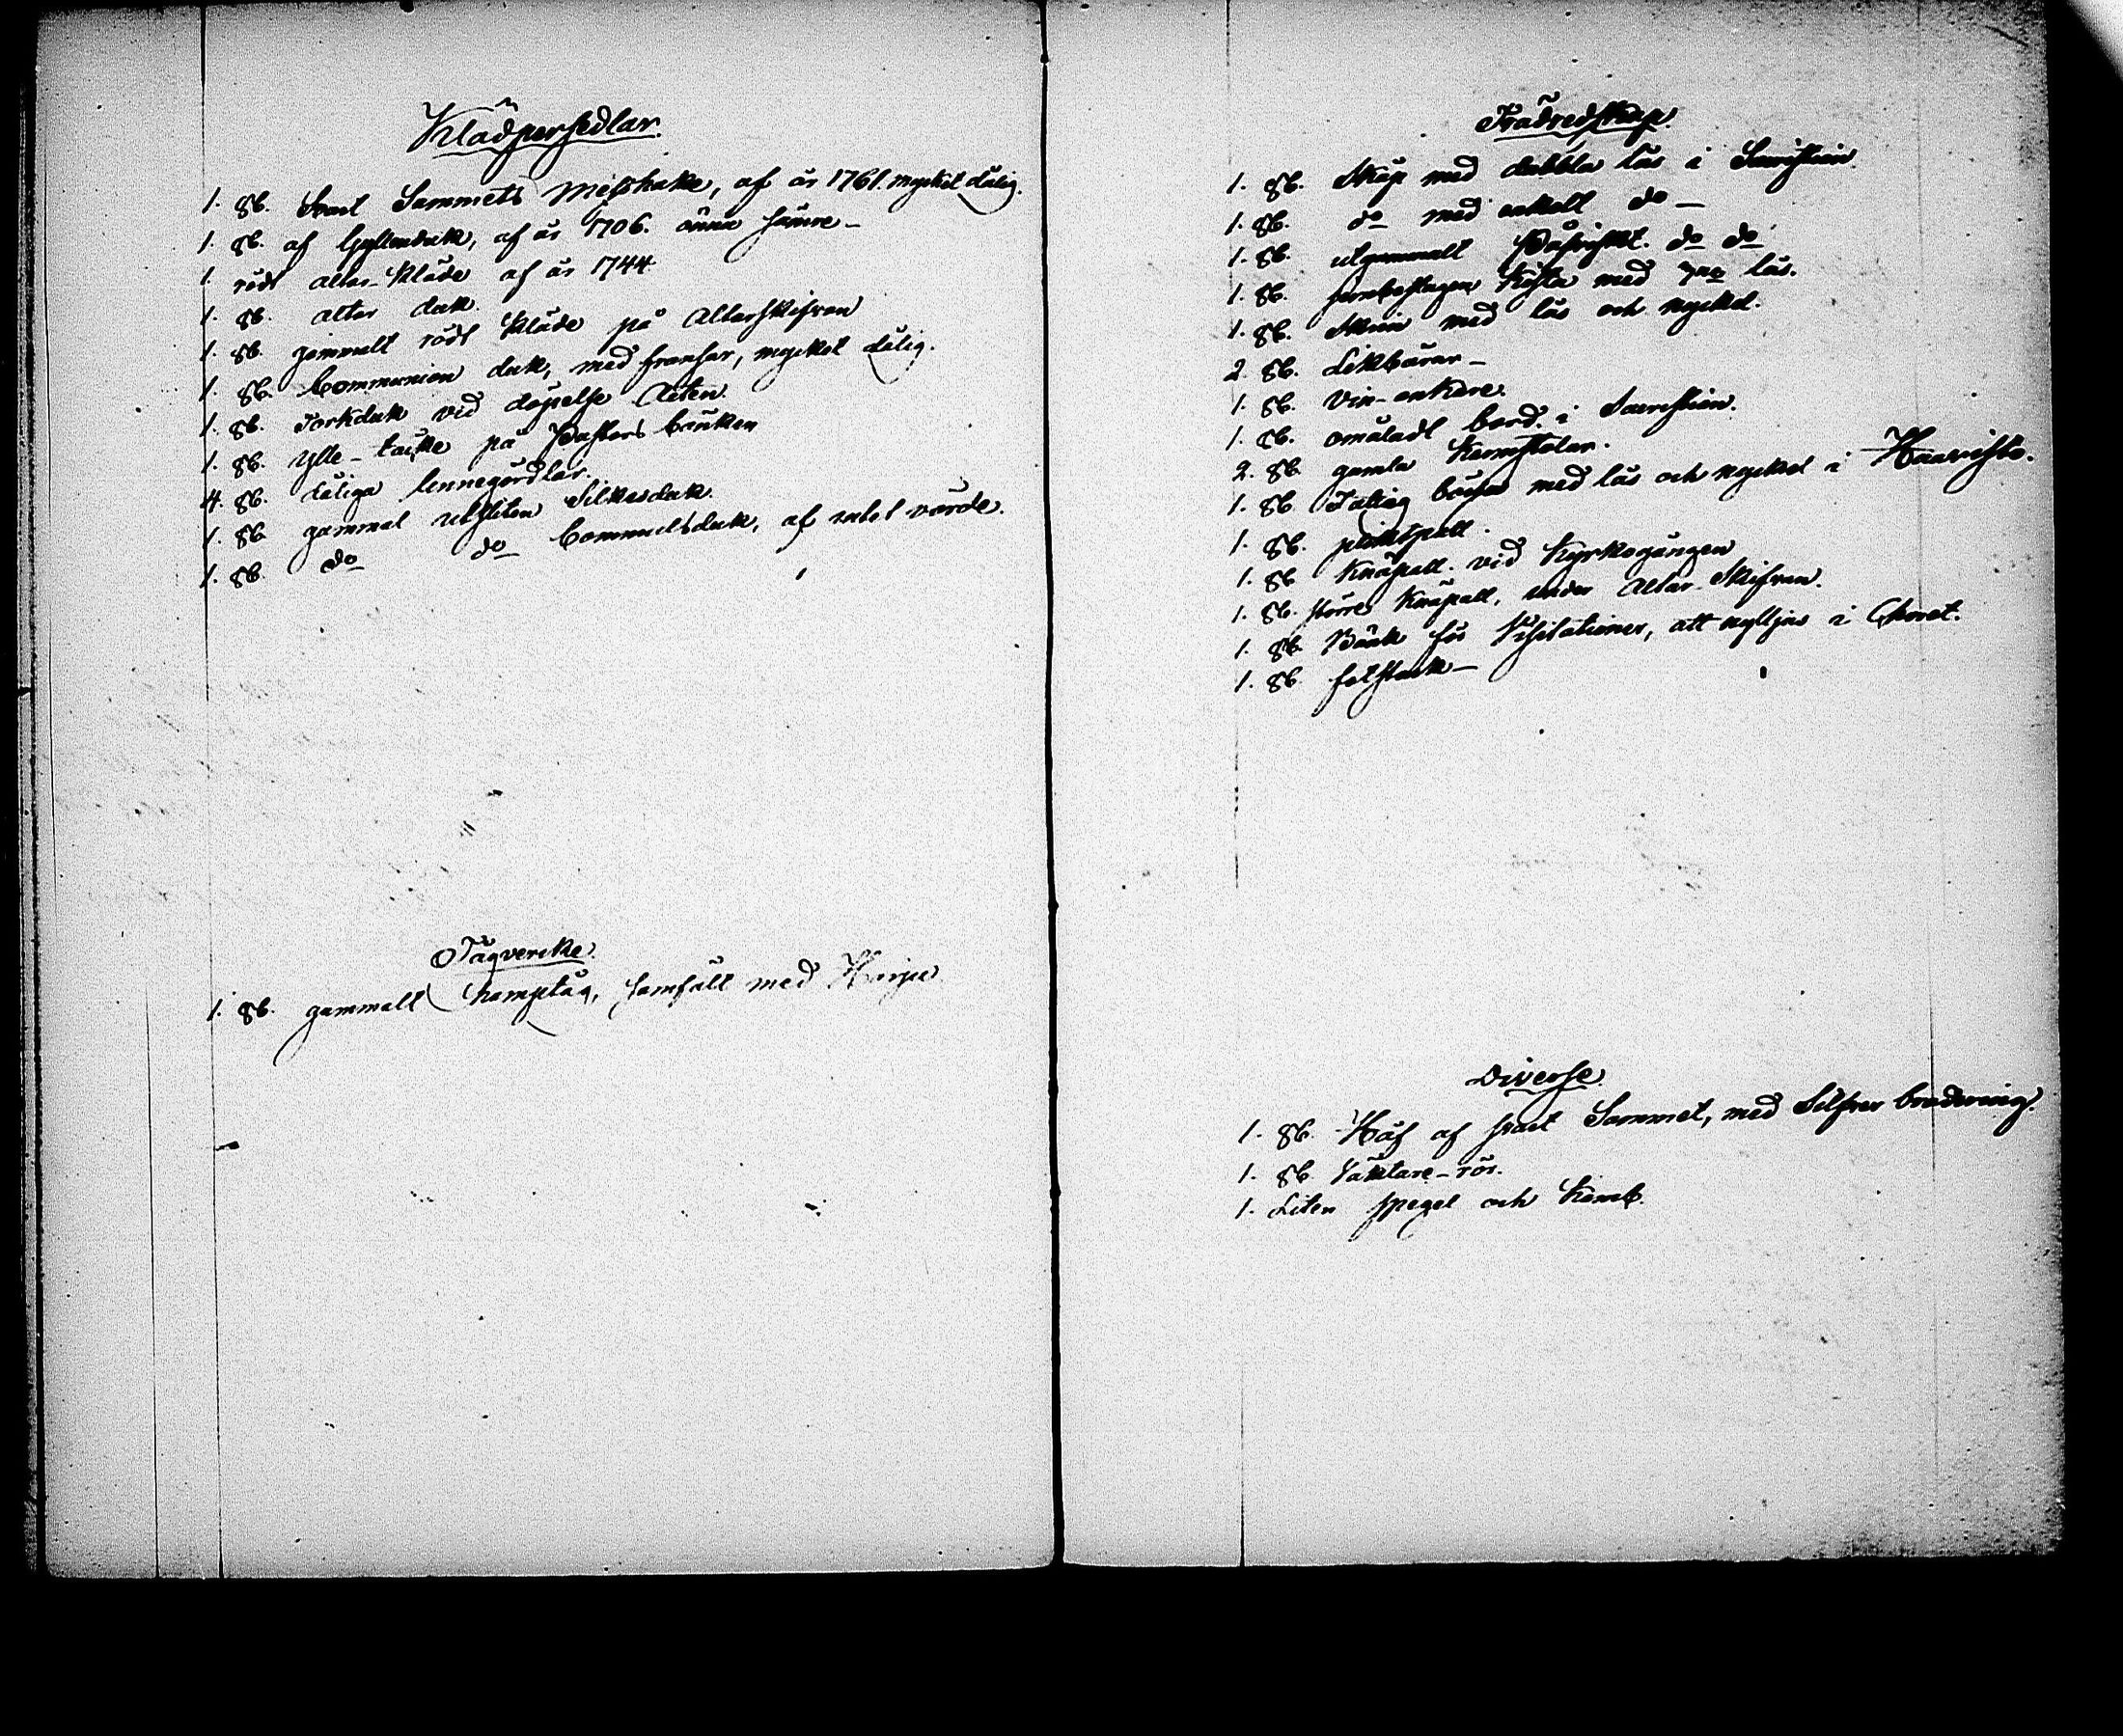 Klädpersedlar.
1. st. Svart Sammets Messhake, af år 1761. mycket dålig.
1. st. af Gyllenduk, af år 1706. ännu sämre -
1. rödt altar-kläde af år 1744
1. st. altar duk.
1. st. gammalt rödt kläde på Altarskifvan
1. st. Communion duk, med fransar, mycket dålig.
1. st. Torkduk vid döpelse Acten.
1. st. ylle-täcke på Pastors bänken
4. st. dåliga linnegördlar.
1. st. gammal utsliten Silkesduk.
1. st. do do bomullsduk, af intet värde.
Tågvercke.
1. st. gammalt hamptåg, samfält med Harju
Trädredskap.
1. st. Skåp med dubbla lås i Sacristian.
1. st. do med enkelt do -
1. st. utgammalt do do
1. st. jernbeslagen Kista med lås.
1. st. Skrin med lås och nyckel.
2. st. Likbårar -
1. st. Vin-ankare.
1. st. omåladt bord i Sacristian.
2. st. gamla Karmstolar.
1. st. Fattig bössa med lås och nyckel i Haavisto.
1. st. pall.
1. st. Knäpall vid Kyrkogången
1. st. större Knäpall, under Altar-Skifvan.
1. st. Bänk för Visitationer, att nyttjas i Choret.
1. st. fotstock -
Diverse.
1. st. Håf af svart Sammet, med Silfver brodering.
1. st. Väktare-rör.
1. Liten spegel och Kamb.